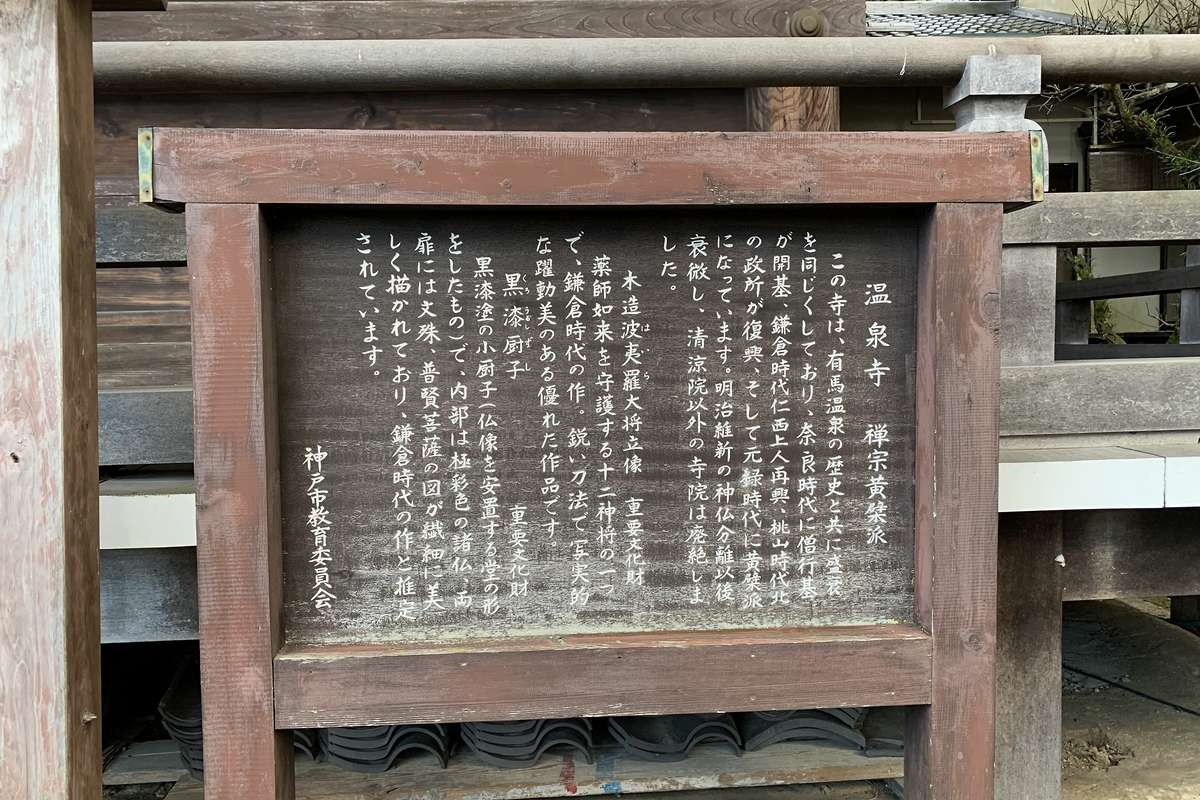 温泉寺 禅宗黄檗派
この寺は、有馬温泉の歴史と共に盛衰
を同じくしており、奈良時代に僧行基
が開基、鎌倉時代仁西上人再興、桃山時代北
の政所が復興、そして元録時代に黄檗派
になっています。明治維新の神仏分離以後
衰微し、清涼院以外の寺院は廃絶しま
した。
木造波夷羅大将立像 重要文化財
はいら
薬師如来を守護する十二神将の一つ
で、鎌倉時代の作。鋭い刀法で写実的
な躍動美のある優れた作品です。
黒漆厨子 重要文化財
くろうるしずし
黒漆塗の小厨子(仏像を安置する堂の形
をしたもの)で、内部は極彩色の諸仏、両
扉には文殊、普賢菩薩の図が繊細に美
しく描かれており、鎌倉時代の作と推定
されています。
神戸市教育委員会